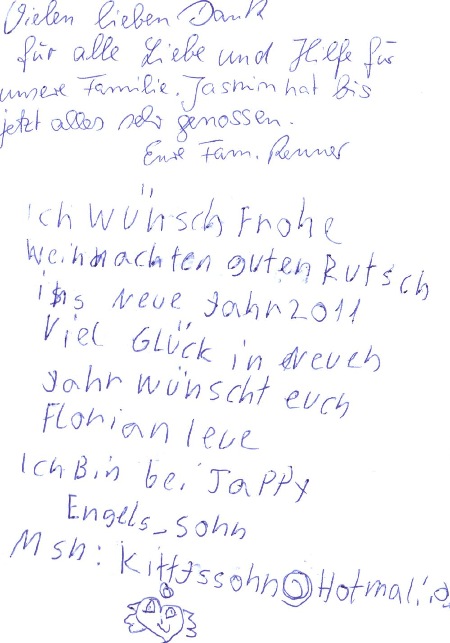 Vielen lieben Dank
für alle Liebe und Hilfe für
unsere Familie. Jasmin hat bis
jetzt alles sehr genossen.
Eure Fam. Renner
Ich wünsch Frohe
Weihnachten guten Rutsch
ins Neue Jahr 2011
Viel Glück in Neuen
Jahr wünscht euch
Florian leue
Ich Bin bei JaPPy
Engels_sohn
Msn: